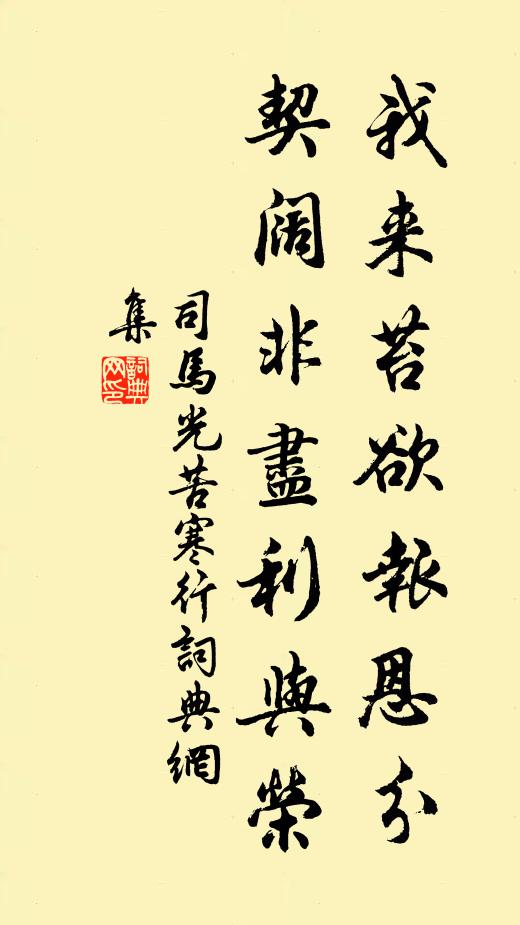 我来苔欲報恩分
契阔非盡利與榮
司馬光苦寒行詞典網
集
詞典网印